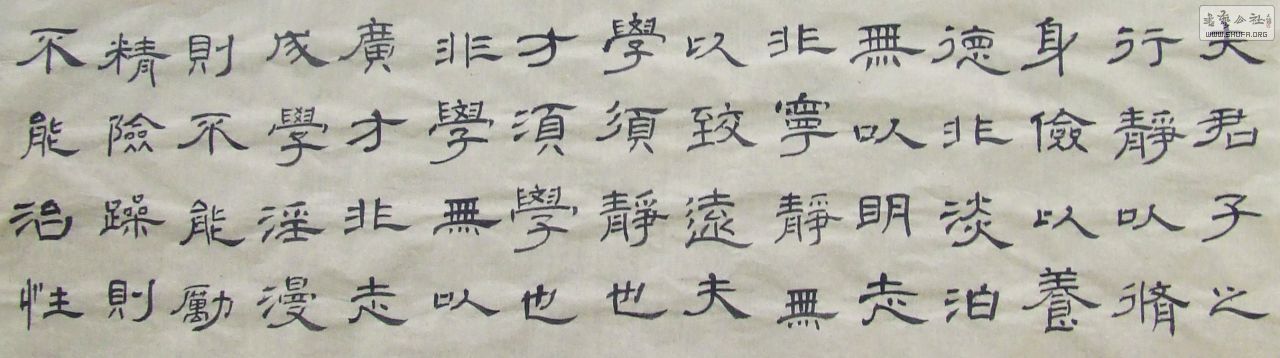 夫君子之
行靜以脩
身儉以養
德非淡泊
無以明志
非寧靜無
以致遠夫
學須靜也
才須學也
非學無以
廣才非志
成學淫漫
則不能勵
精險躁則
不能治性
WWW.SHUFA.ORG